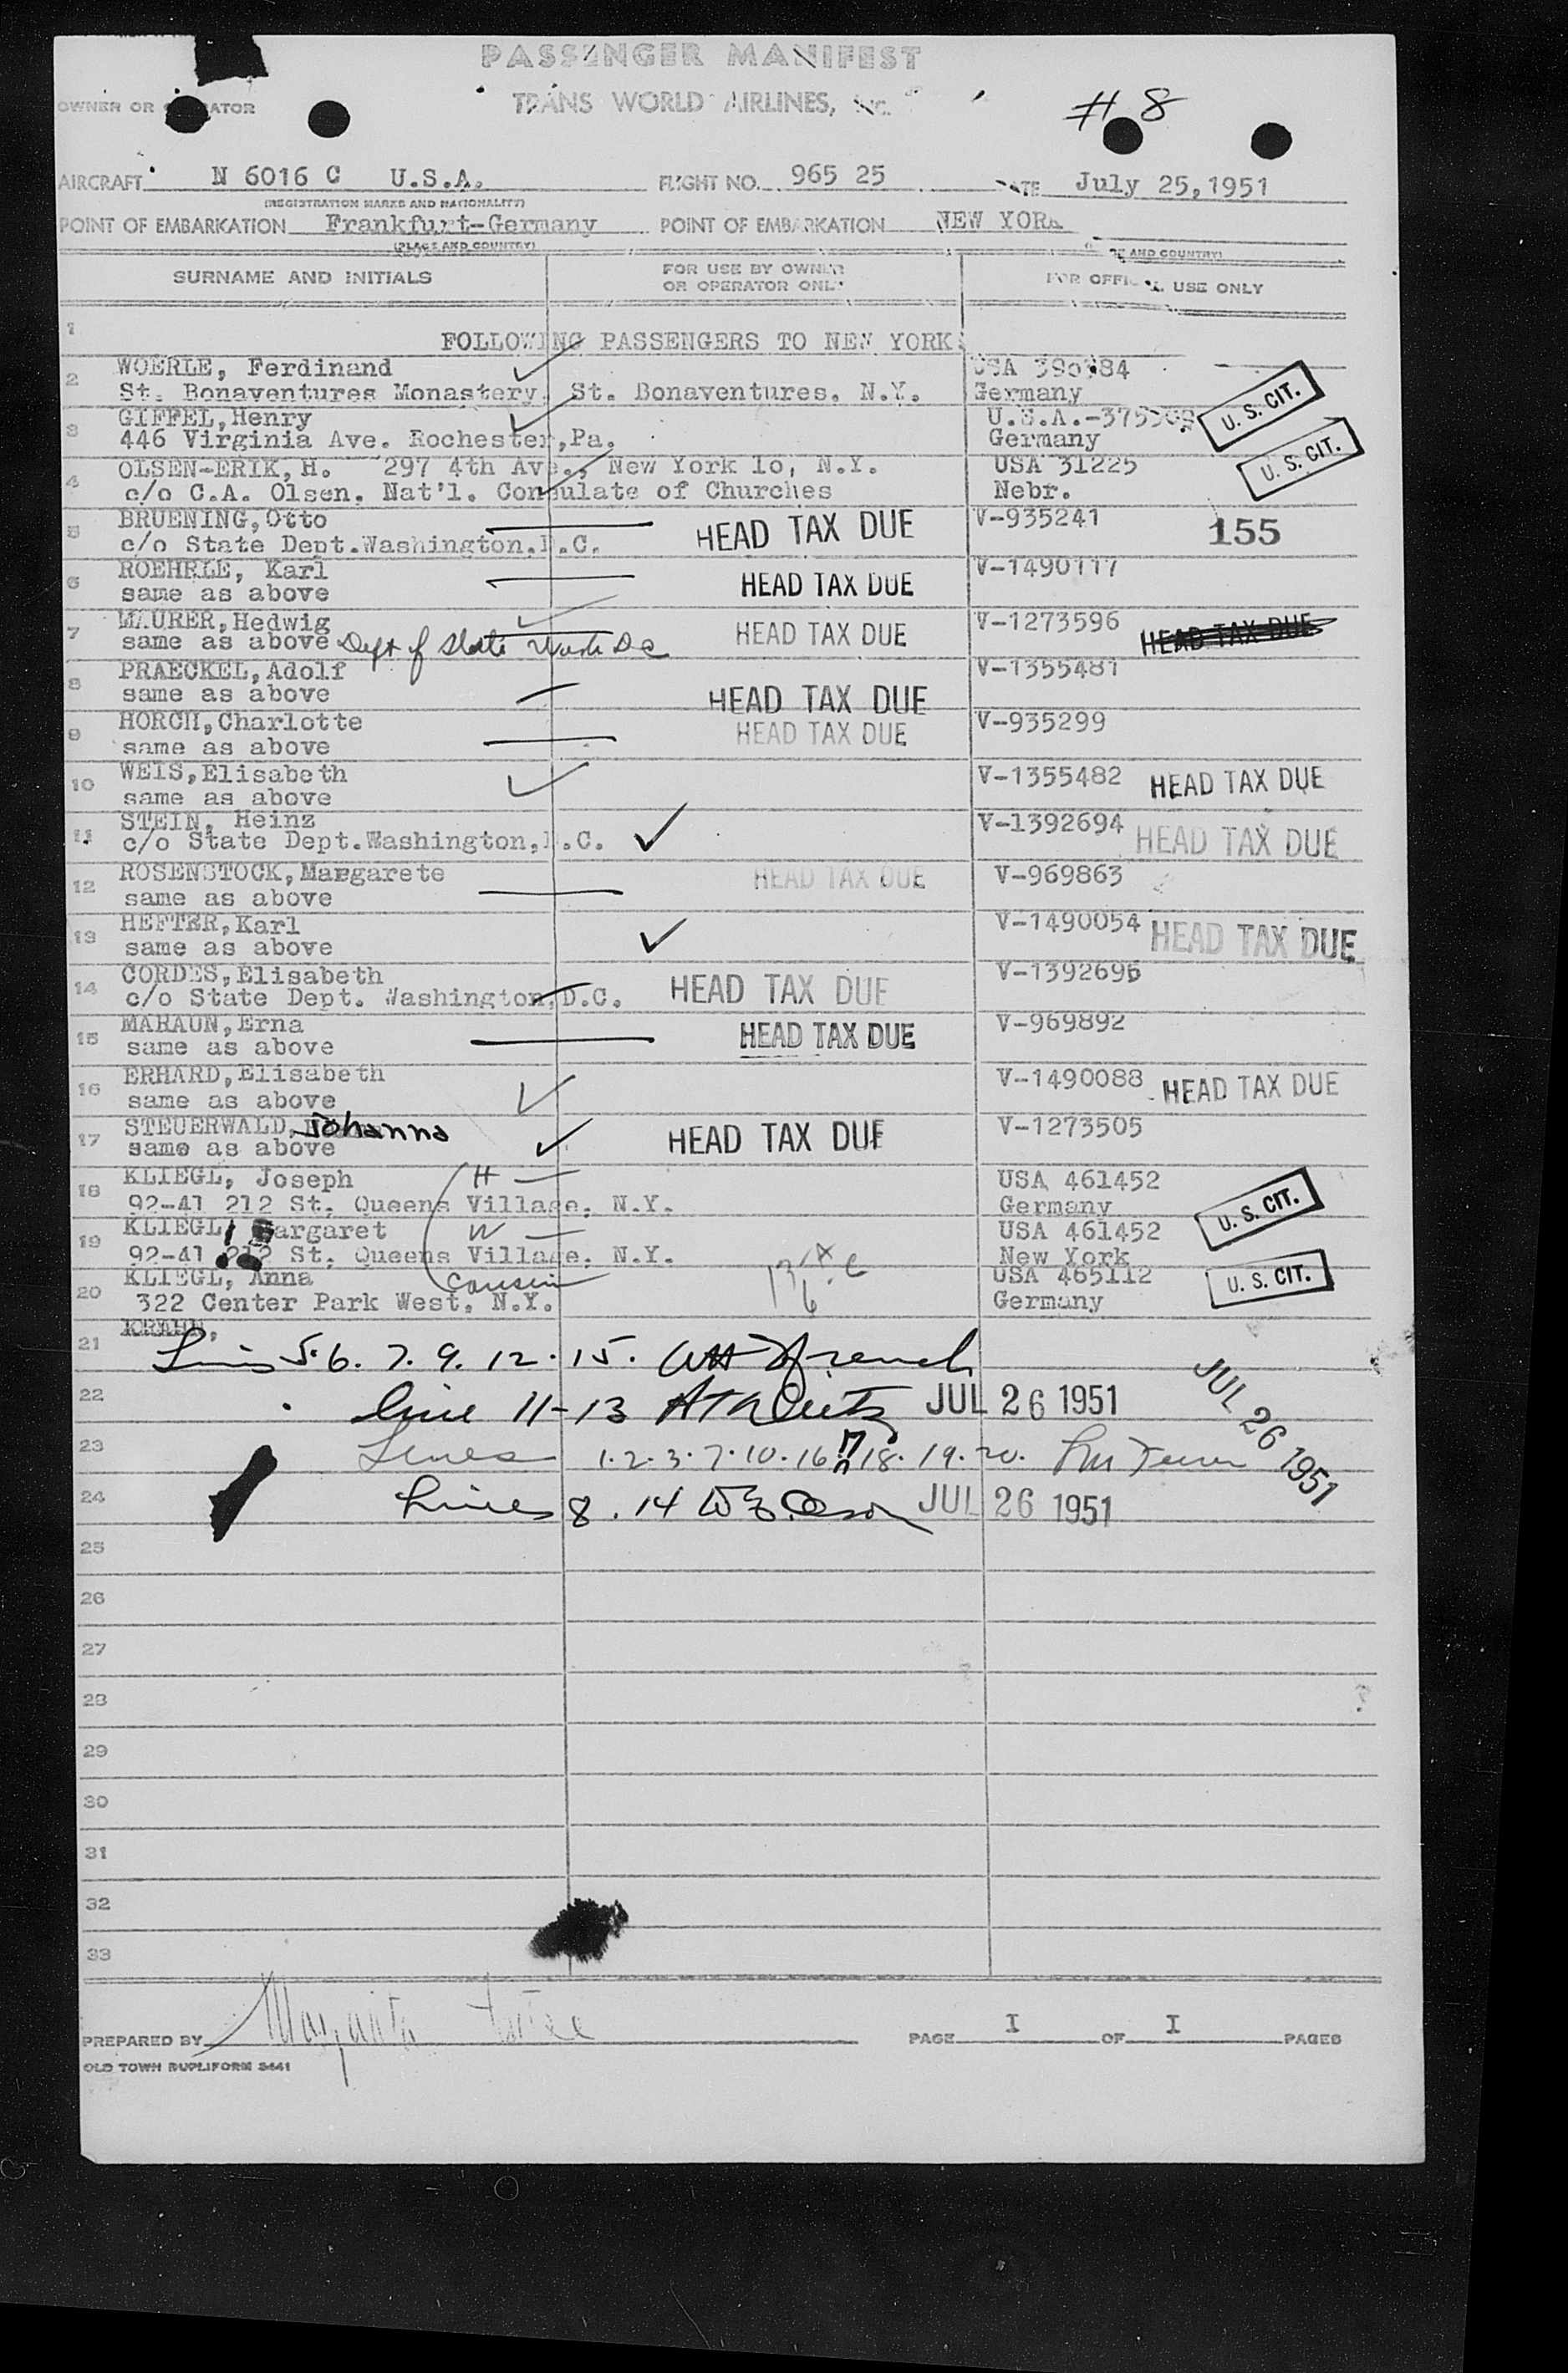 PASSENGER MANIFEST
OWNER OR OPERATOR TRANS WORLD AIRLINES, Inc. # 8
AIRCRAFT N 6016 C U.S.A. FLIGHT NO. 965 25 DATE July 25,1951
(REGISTRATION MARKS AND NATIONALITY)
POINT OF EMBARKATION Frankfurt-Germany POINT OF EMBARKATION NEW YORK
(PLACE AND COUNTRY) AND COUNTRY)
SURNAME AND INITIALS FOR USE BY OWNER OR OPERATOR ONLY FOR OFFICIAL USE ONLY
1 FOLLOWING PASSENGERS TO NEW YORK:
2 WOERLE, Ferdinand USA 390384
St. Bonaventures Monastery, St. Bonaventures, N.Y. Germany
3 GIFFEL,Henry U.S.A.-375509 U. S. CIT.
446 Virginia Ave. Rochester,Pa. Germany
4 OLSEN-ERIK, H. 297 4th Ave., New York 1o, N.Y. USA 31225 U. S. CIT.
c/o C.A. Olsen. Nat'l. Consulate of Churches Nebr.
5 BRUENING,Otto HEAD TAX DUE V-935241 155
c/o State Dept.Washington.D.C.
6 ROEHRLE, Karl HEAD TAX DUE V-1490117
same as above
7 MAURER,Hedwig HEAD TAX DUE V-1273596 HEAD TAX DUE
same as above Dept of State Wash DC
8 PRAECKEL,Adolf HEAD TAX DUE V-1355481
same as above
9 HORCH,Charlotte HEAD TAX DUE V-935299
same as above
10 WEIS,Elisabeth V-1355482 HEAD TAX DUE
same as above
11 STEIN, Heinz V-1392694 HEAD TAX DUE
c/o State Dept.Washington,D.C.
12 ROSENSTOCK,Margarete HEAD TAX DUE V-969863
same as above
13 HEFTER,Karl V-1490054 HEAD TAX DUE
same as above
14 CORDES,Elisabeth HEAD TAX DUE V-1392696
c/o State Dept. Washington,D.C.
15 MARAUN,Erna HEAD TAX DUE V-969892
same as above
16 ERHARD,Elisabeth V-1490088 HEAD TAX DUE
same as above
17 STEUERWALD, Johanna HEAD TAX DUE V-1273505
same as above
18 KLIEGL, Joseph H USA 461452
92-41 212 St. Queens Village, N.Y. Germany U. S. CIT.
19 KLIEGL, Margaret W USA 461452
92-41 212 St. Queens Village, N.Y. New York
20 KLIEGL, Anna cousin USA 465112 U. S. CIT.
322 Center Park West, N.Y. Germany
21 KRAHN,
5. 6. 7. 9. 12. 15.
22 line 11-13 JUL 26 1951 JUL 26 1951
23 Lines 1. 2. 3. 7. 10. 16 17 18. 19. 20.
24 Lines 8. 14 JUL 26 1951
25
26
27
28
29
30
31
32
33
PREPARED BY PAGE I OF I PAGES
OLD TOWN DUPLIFORM 3441